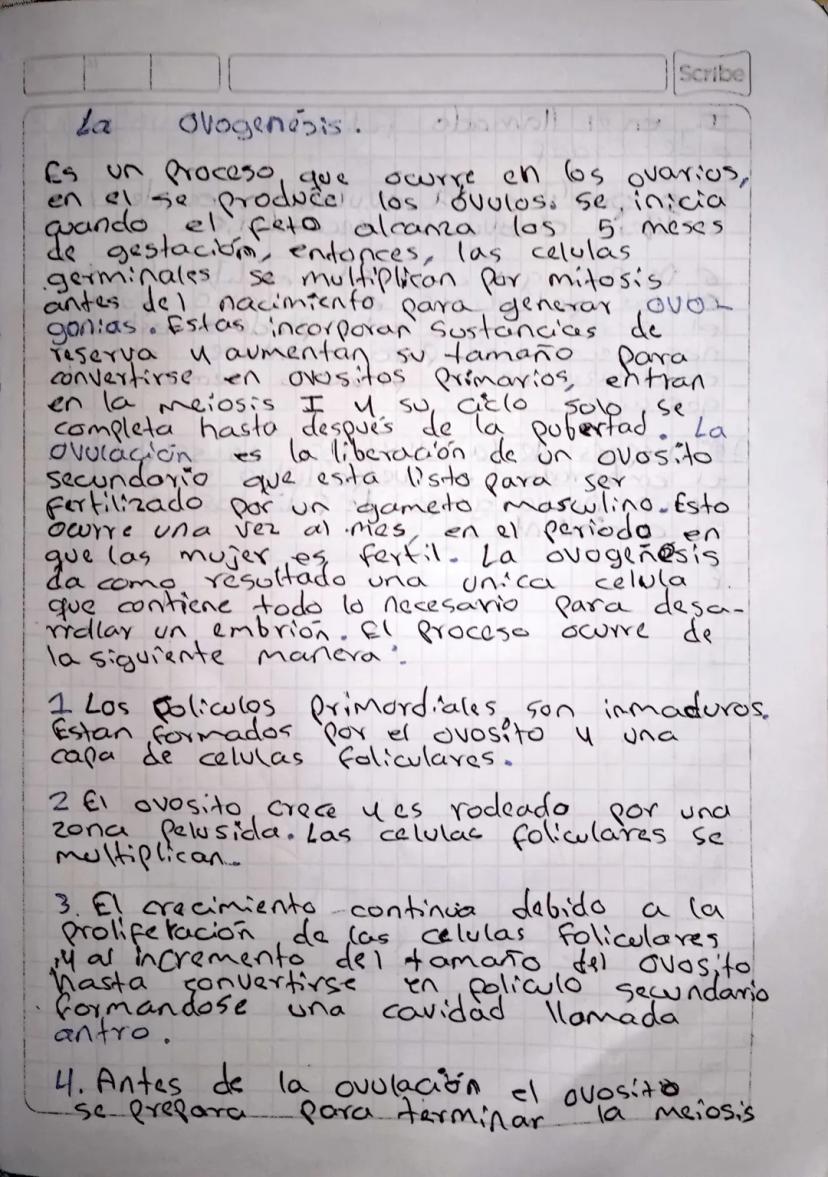 Scribe
La Ovogenésis.
Es un Proceso, que ocurre en los ovarios,
en el se produce los óvulos. se inicia
cuando el feto alcanza los 5 meses
de gestación, entonces, las celulas
germinales se multiplican por mitosis
antes del nacimiento para generar ovo-
gonias. Estas incorporan sustancias de
reserva y aumentan su tamaño para
convertirse en ovositos Primarios, entran
en la meiosis I y su ciclo solo se
completa hasta después de la pubertad. La
ovulación es la liberación de un ovosito
secundario que esta listo para ser
fertilizado por un gameto masculino. Esto
ocurre una vez al mes, en el periodo en
que las mujer es fertil. La ovogenésis
da como resultado una unica celula
que contiene todo lo necesario para desa-
rrollar un embrión. El Proceso ocurre de
la siguiente manera:
1 Los Foliculos Primordiales son inmaduros.
Estan formados por el ovosito y una
capa de celulas foliculares.
2 El ovosito crece y es rodeado por una
zona Pelusida. Las celulas foliculares se
multiplican.
3. El crecimiento continua debido a la
proliferación de las celulas foliculares
y al incremento del tamaño del ovosito
hasta convertirse en foliculo secundario
formandose una cavidad llamada
antro.
4. Antes de la ovulación el ovosito
se prepara para terminar la meiosis